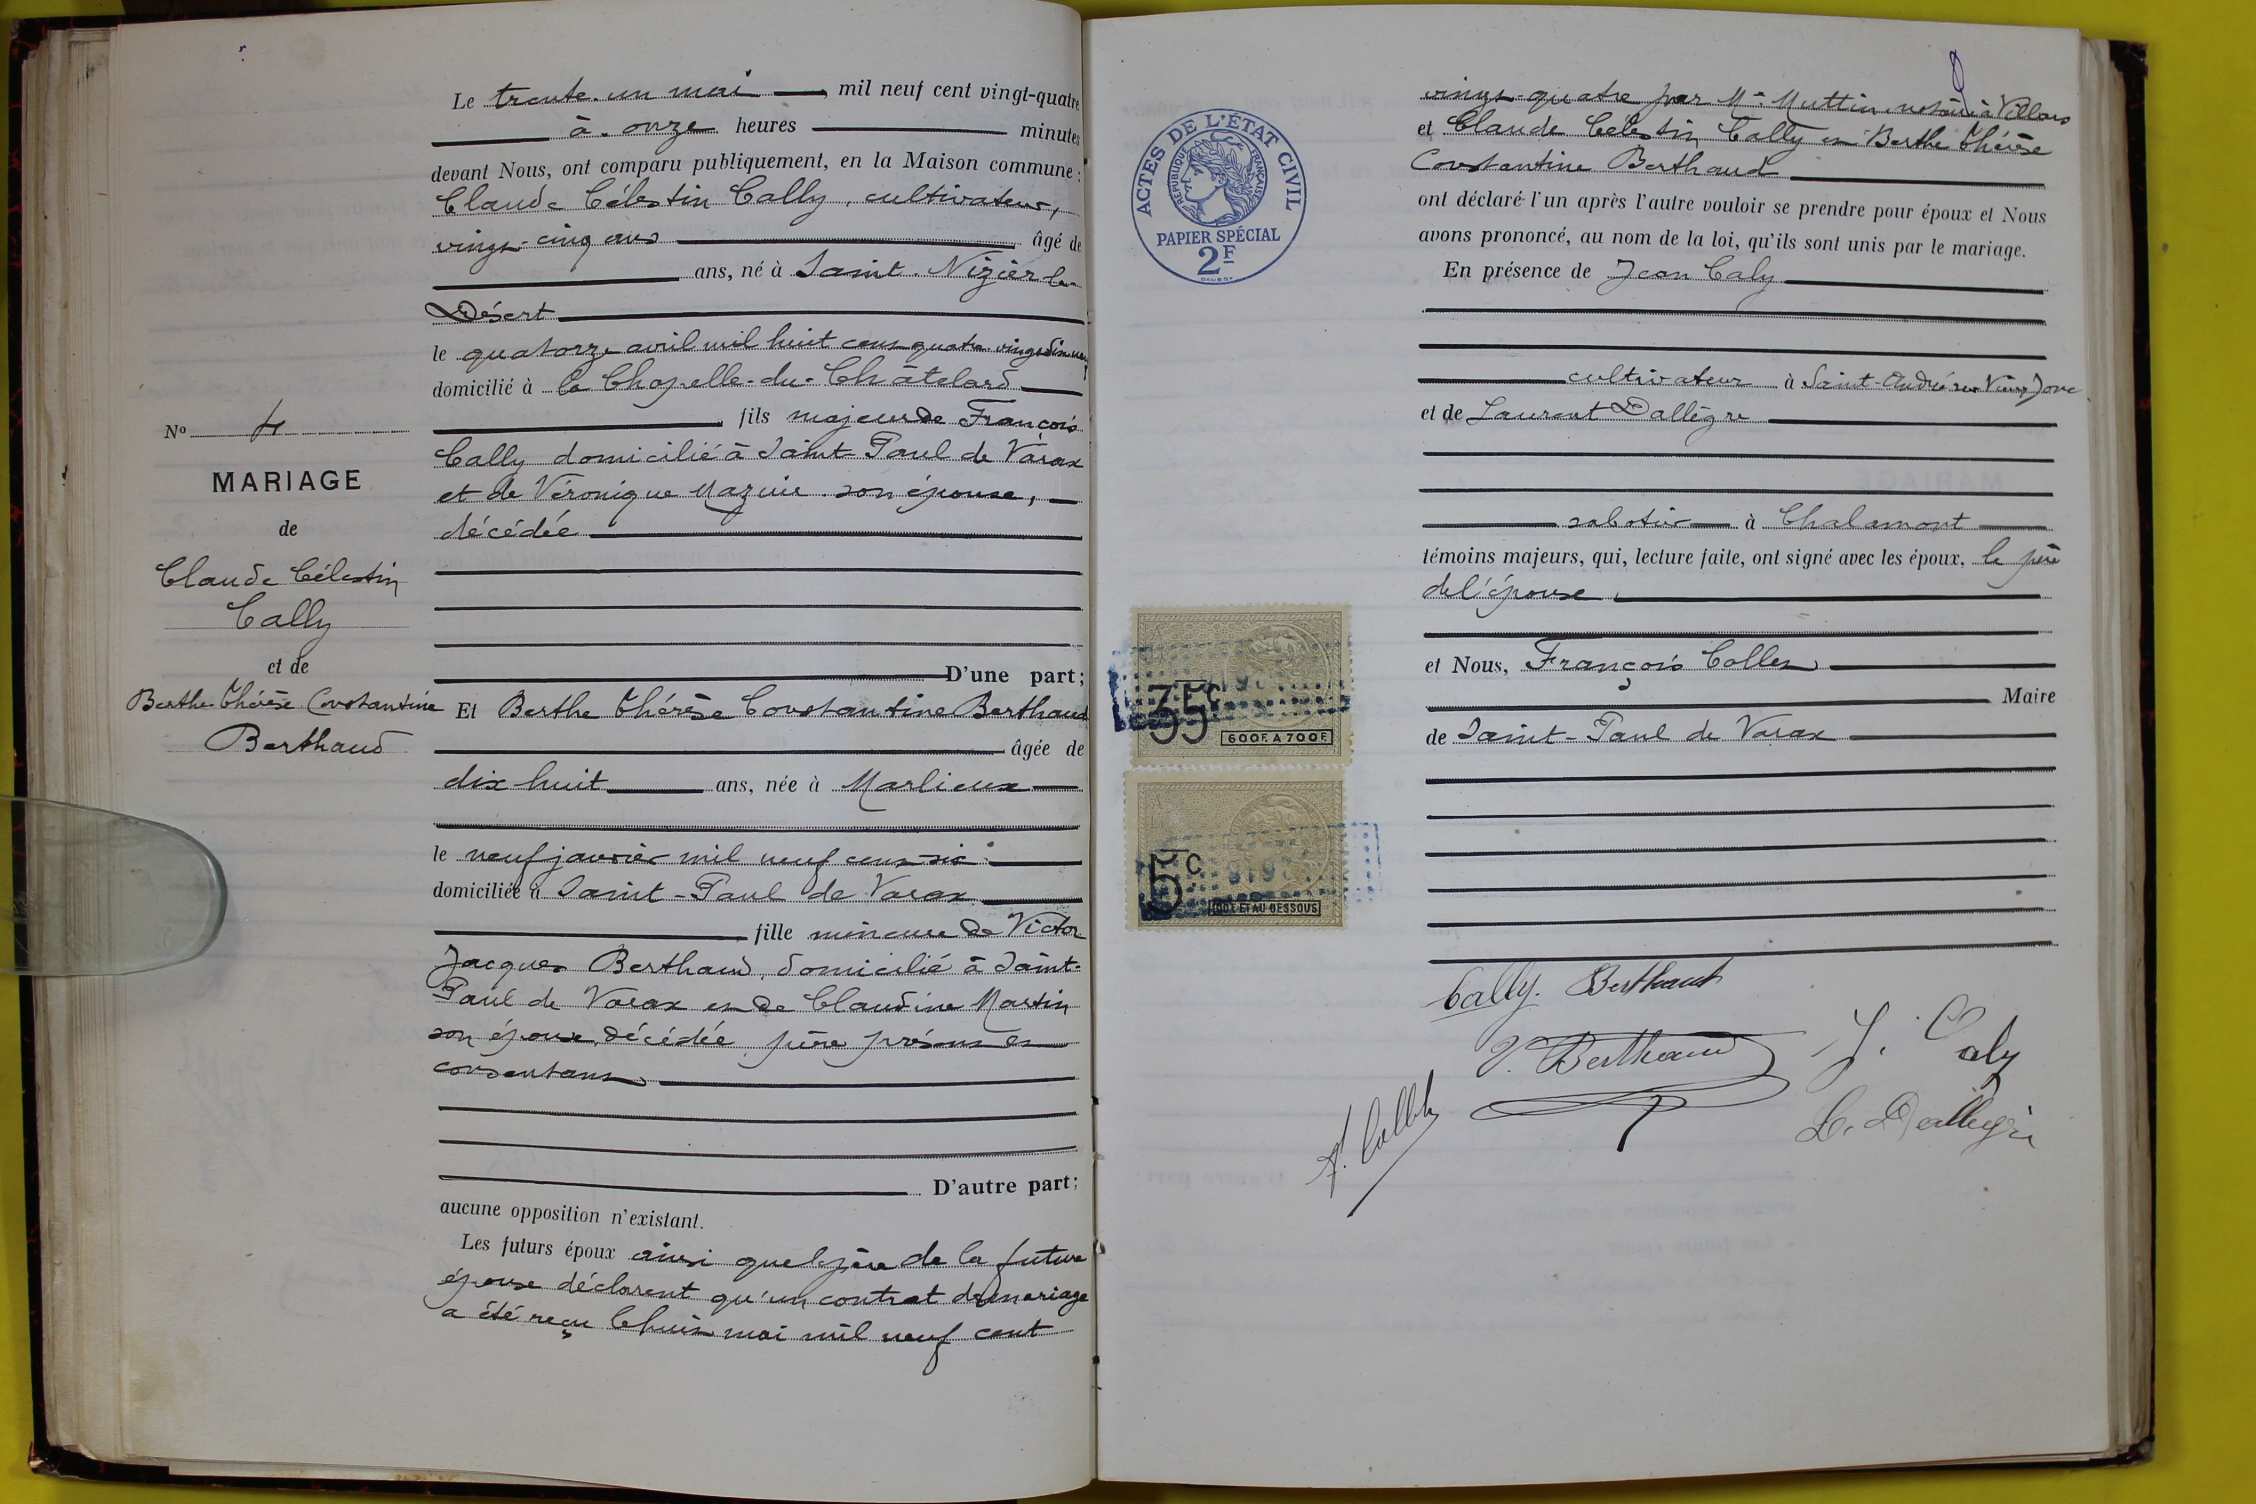 Le trente-un mai mil neuf cent vingt-quatre
à onze heures minutes
devant Nous, ont comparu publiquement, en la Maison commune :
Claude Célestin Cally, cultivateur,
vingt-cinq ans âgé de
ans, né à Saint-Nizier-le-
Désert
le quatorze avril mil huit cent quatre-vingt-dix-neuf
domicilié à la Chapelle-du-Châtelard
fils majeur de François
Cally domicilié à Saint-Paul de Varax
et de Véronique Mazuir son épouse,
décédée
D'une part;
No 4
MARIAGE
de
Claude Célestin
Cally
et de
Berthe Thérèse Constantine
Berthaud
Et Berthe Thérèse Constantine Berthaud
âgée de
dix huit ans, née à Marlieux
le neuf janvier mil neuf cent six
domiciliée à Saint-Paul de Varax
fille mineure de Victor
Jacques Berthaud, domicilié à Saint-
Paul de Varax et de Claudine Martin
son épouse, décédée, père présent et
consentant
D'autre part;
aucune opposition n'existant.
Les futurs époux ainsi que le père de la future
épouse déclarent qu'un contrat de mariage
a été reçu le huit mai mil neuf cent
ACTES DE L'ÉTAT CIVIL
RÉPUBLIQUE FRANÇAISE
PAPIER SPÉCIAL
2F
vingt-quatre par Me Muttin notaire à Villars
et Claude Célestin Cally et Berthe Thérèse
Constantine Berthaud
ont déclaré l'un après l'autre vouloir se prendre pour époux et Nous
avons prononcé, au nom de la loi, qu'ils sont unis par le mariage.
En présence de Jean Caly
cultivateur à Saint-André sur Vieux Jonc
et de Laurent Dallègre
sabotier à Chalamont
témoins majeurs, qui, lecture faite, ont signé avec les époux, le père
de l'épouse
et Nous, François Collet
Maire
de Saint-Paul de Varax
35c
600F. A 700F.
5c
100F. ET AU DESSOUS
Cally. Berthaud
V. Berthaud
J. Caly
F. Collet
L. Dallègre